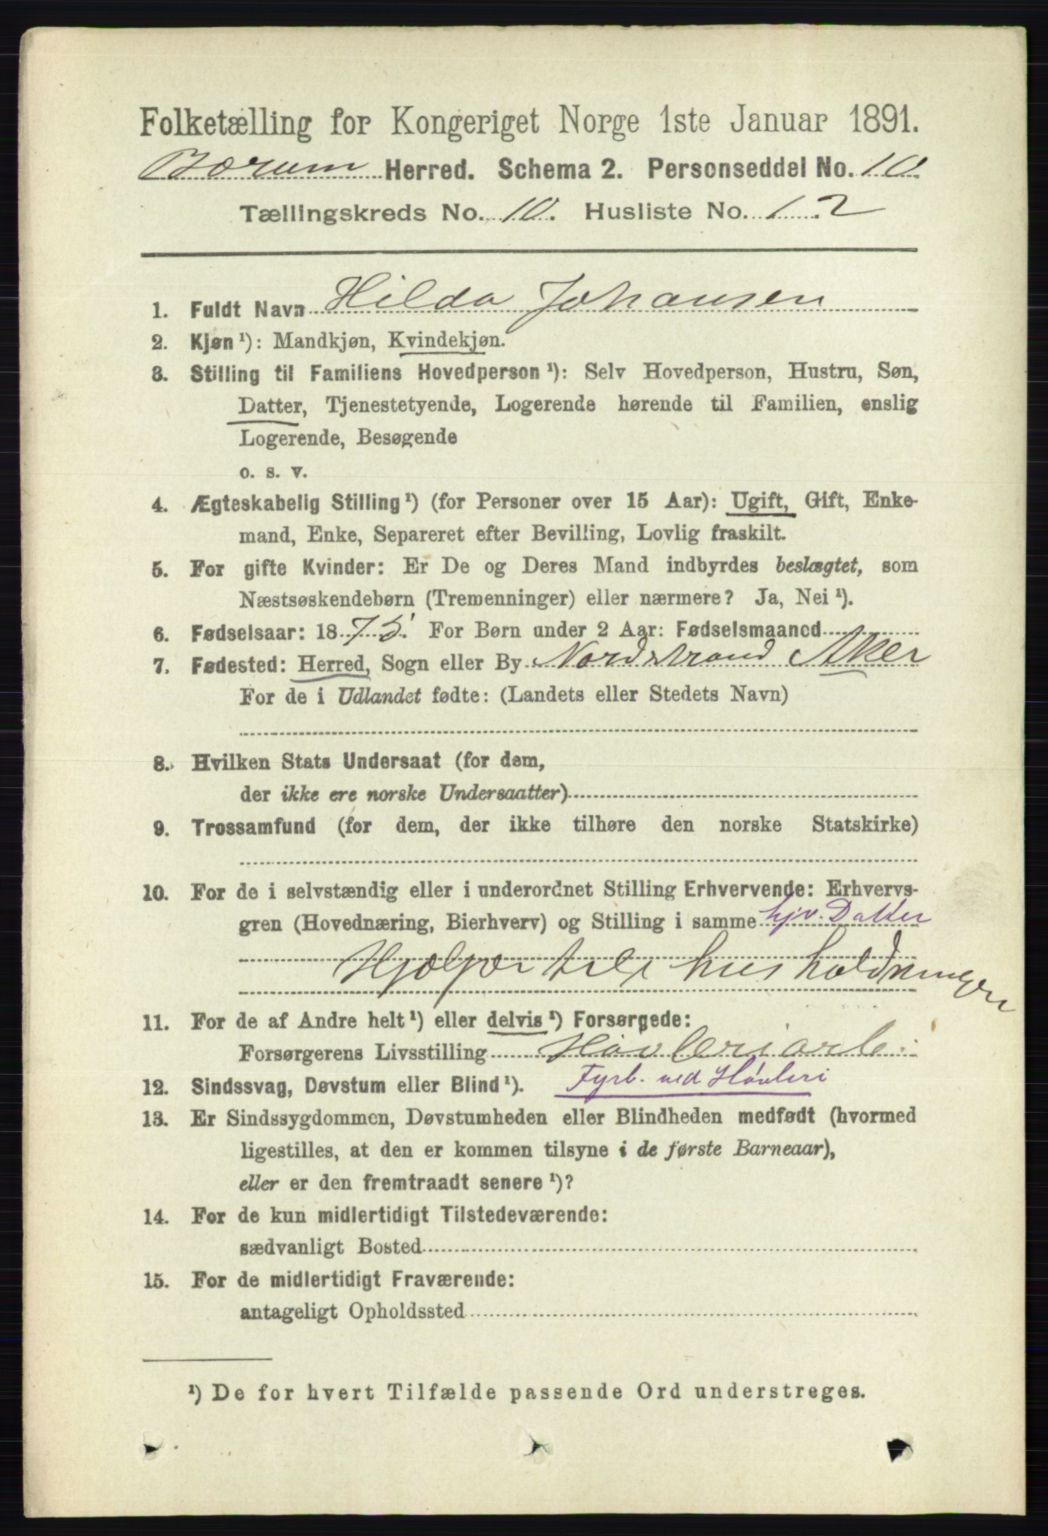 Folketælling for Kongeriget Norge 1ste Januar 1891.
Bærum Herred. Schema 2. Personseddel No. 10
Tællingskreds No. 10. Husliste No. 12
1. Fuldt Navn Hilda Johansen
2. Kjøn ¹): Mandkjøn, Kvindekjøn.
3. Stilling til Familiens Hovedperson ¹): Selv Hovedperson, Hustru, Søn,
Datter, Tjenestetyende, Logerende hørende til Familien, enslig
Logerende, Besøgende
o. s. v.
4. Ægteskabelig Stilling ¹) (for Personer over 15 Aar): Ugift, Gift, Enke-
mand, Enke, Separeret efter Bevilling, Lovlig fraskilt.
5. For gifte Kvinder: Er De og Deres Mand indbyrdes beslægtet, som
Næstsøskendebørn (Tremenninger) eller nærmere? Ja, Nei ¹).
6. Fødselsaar: 1875. For Børn under 2 Aar: Fødselsmaaned
7. Fødested: Herred, Sogn eller By Nordstrand Aker
For de i Udlandet fødte: (Landets eller Stedets Navn)
8. Hvilken Stats Undersaat (for dem,
der ikke ere norske Undersaatter)
9. Trossamfund (for dem, der ikke tilhøre den norske Statskirke)
10. For de i selvstændig eller i underordnet Stilling Erhvervende: Erhvervs-
gren (Hovednæring, Bierhverv) og Stilling i samme hjv. Datter
Hjælper til i husholdningen
11. For de af Andre helt ¹) eller delvis ¹) Forsørgede:
Forsørgerens Livsstilling Høvleriarb.
12. Sindssvag, Døvstum eller Blind ¹). Fyrb. ved Høvleri
13. Er Sindssygdommen, Døvstumheden eller Blindheden medfødt (hvormed
ligestilles, at den er kommen tilsyne i de første Barneaar),
eller er den fremtraadt senere ¹)?
14. For de kun midlertidigt Tilstedeværende:
sædvanligt Bosted
15. For de midlertidigt Fraværende:
antageligt Opholdssted
¹) De for hvert Tilfælde passende Ord understreges.